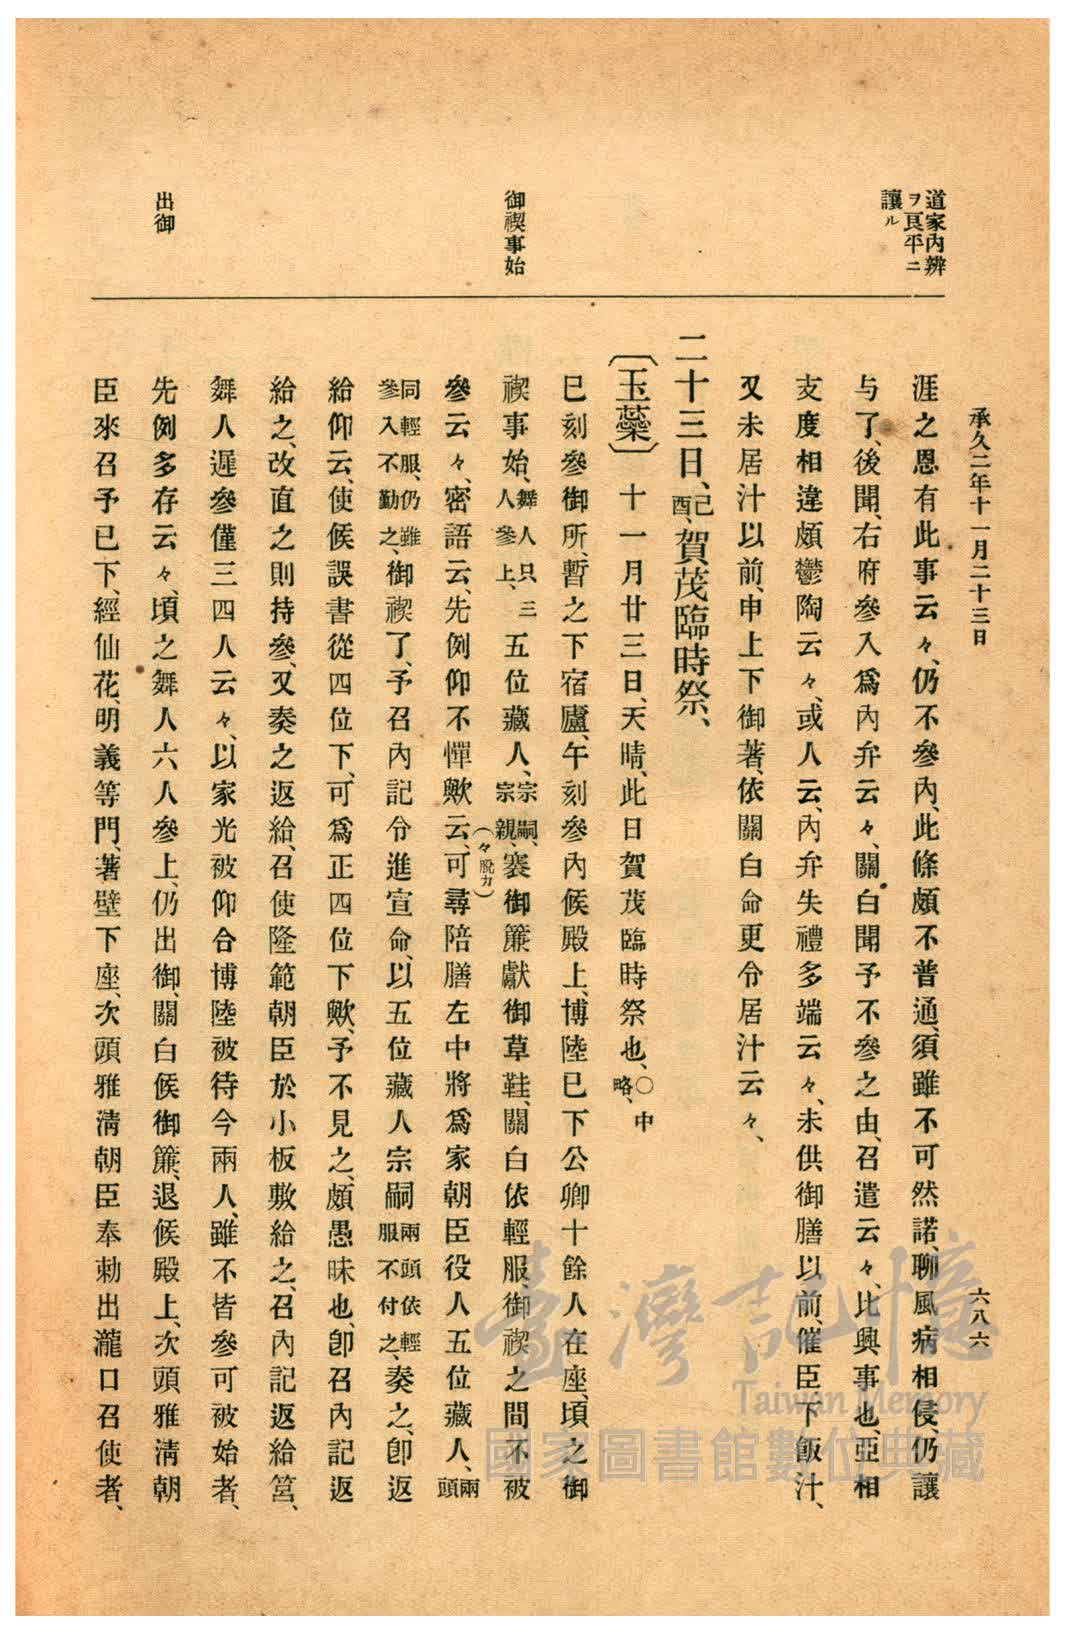 承久二年十一月二十三日
六八六
道家內辨
ヲ良平ニ
讓ル
御禊事始
出御
涯之恩有此事云々、仍不參內、此條頗不普通、須雖不可然諾、聊風病相侵、仍讓
与了、後聞、右府參入爲內弁云々、關白聞予不參之由、召遣云々、比興事也、亞相
支度相違頗鬱陶云々、或人云、內弁失禮多端云々、未供御膳以前、催臣下飯汁、
又未居汁以前、申上下御著、依關白命更令居汁云々、
二十三日、己酉、賀茂臨時祭、
〔玉蘂〕十一月廿三日、天晴、此日賀茂臨時祭也、○中略、
巳刻參御所、暫之下宿廬、午刻參內候殿上、博陸已下公卿十餘人在座、頃之御
禊事始、舞人只三人參上、五位藏人、宗嗣、宗親、褰御簾獻御草鞋、關白依輕服、御禊之間不被
參云々、密語云、先例仰不憚歟云、(々脫カ)可尋陪膳左中將爲家朝臣役人五位藏人、兩頭
同輕服、仍雖參入不勤之、御禊了、予召內記令進宣命、以五位藏人宗嗣兩頭依輕服不付之、奏之、卽返
給仰云、使候誤書從四位下、可爲正四位下歟、予不見之、頗愚昧也、卽召內記返
給之、改直之則持參、又奏之返給、召使隆範朝臣於小板敷給之、召內記返給筥、
舞人遲參僅三四人云々、以家光被仰合博陸被待今兩人、雖不皆參可被始者、
先例多存云々、頃之舞人六人參上、仍出御、關白候御簾、退候殿上、次頭雅淸朝
臣來召予已下、經仙花、明義等門、著壁下座、次頭雅淸朝臣奉勅出瀧口召使者、
臺灣記憶
Taiwan Memory
國家圖書館數位典藏